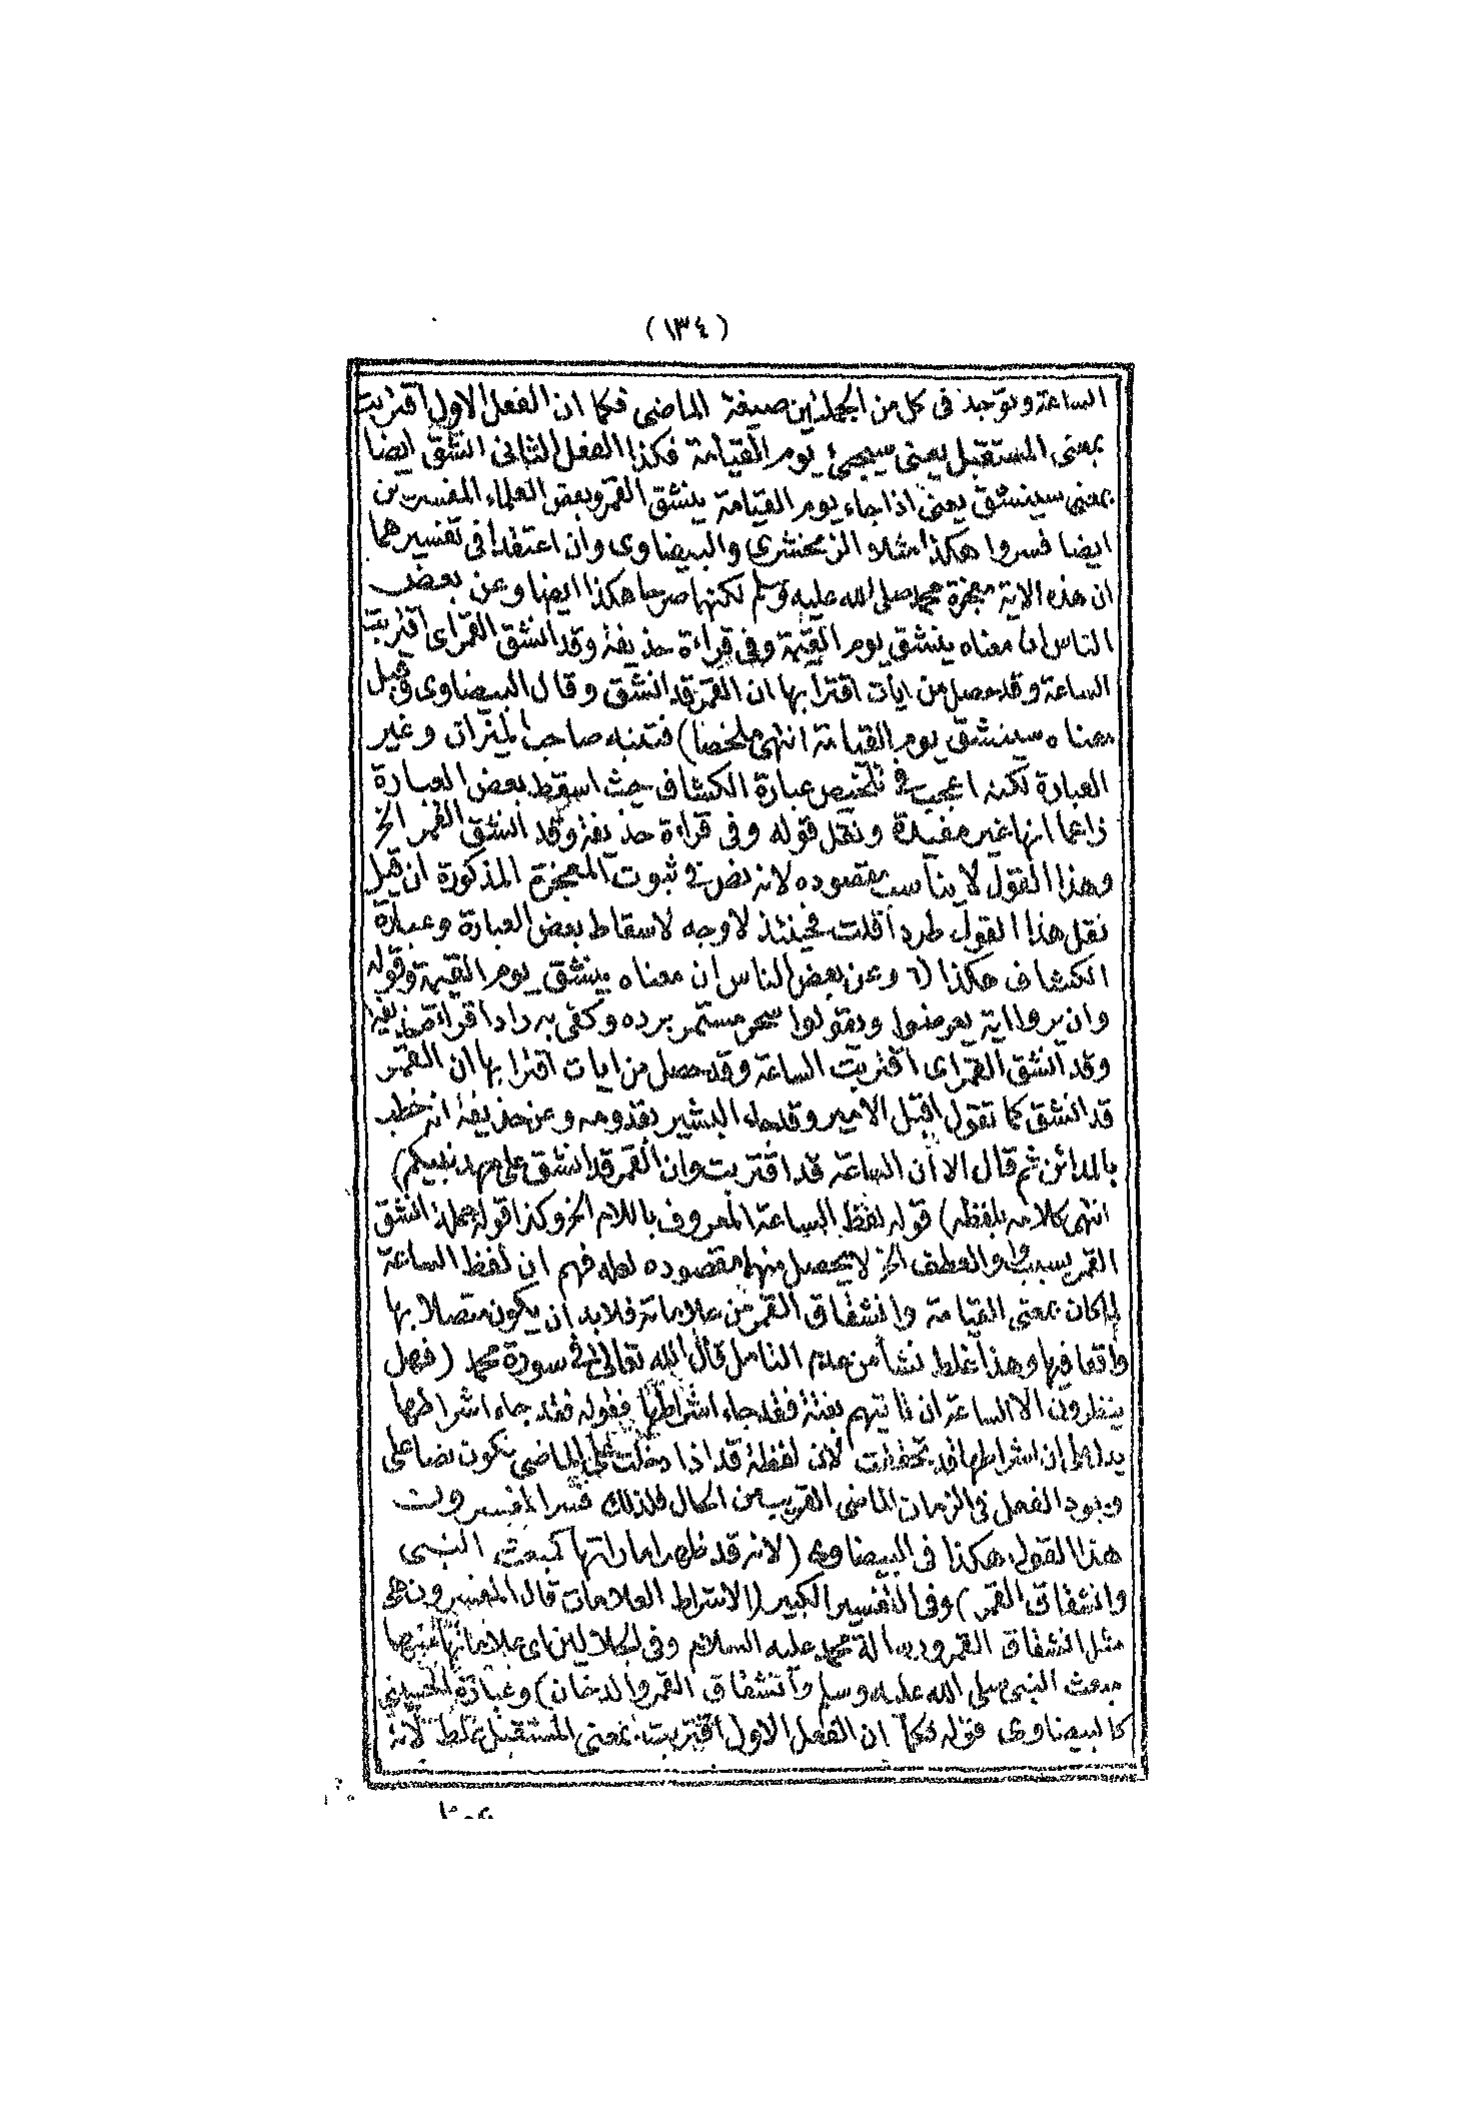 (١٣٤)
الساعة وتوجد فى كل من الجملتين صيغة الماضى فكما ان الفعل الاول اقتربت
بمعنى المستقبل يعنى سيجئ يوم القيامة فكذا الفعل الثانى انشق ايضا
بمعنى سينشق يعنى اذا جاء يوم القيامة ينشق القمر وبعض العلماء المفسرين
ايضا فسروا هكذا مثلا الزمخشرى والبيضاوى وان اعتقدا فى تفسيرهما
ان هذه الاية معجزة محمد صلى الله عليه وسلم لكنهما صرحا هكذا ايضا وعن بعض
الناس ان معناه ينشق يوم القيمة وفى قراءة حذيفة وقد انشق القمر اى اقتربت
الساعة وقد حصل من ايات اقترابها ان القمر قد انشق وقال البيضاوى وقيل
معناه سينشق يوم القيامة انتهى ملخصا) فتنبه صاحب الميزان وغير
العبارة لكنه اعجب فى تلخيص عبارة الكشاف حيث اسقط بعض العبارة
زاعما انها غير مفيدة ونقل قوله وفى قراءة حذيفة وقد انشق القمر الخ
وهذا القول لا يناسب مقصوده لانه نص فى ثبوت المعجزة المذكورة ان قيل
نقل هذا القول طردا قلت فحينئذ لا وجه لاسقاط بعض العبارة وعبارة
الكشاف هكذا (٦ وعن بعض الناس ان معناه ينشق يوم القيمة وقوله
وان يروا اية يعرضوا ويقولوا سحر مستمر يرده وكفى به رادا قراءة حذيفة
وقد انشق القمر اى اقتربت الساعة وقد حصل من ايات اقترابها ان القمر
قد انشق كما تقول اقبل الامير وقد جاء البشير بقدومه وعن حذيفة انه خطب
بالمدائن ثم قال الا ان الساعة قد اقتربت وان القمر قد انشق على عهد نبيكم)
انتهى كلامه بلفظه) قوله لفظ الساعة المعروف باللام الخ وكذا قوله جملة انشق
القمر بسبب واو العطف الخ لا يحصل منهما مقصوده لعله فهم ان لفظ الساعة
لما كان بمعنى القيامة وانشقاق القمر من علاماته فلا بد ان يكون متصلا بها
واقعا فيها وهذا غلط نشأ من عدم التامل قال الله تعالى فى سورة محمد (فهل
ينظرون الا الساعة ان تاتيهم بغتة فقد جاء اشراطها فقوله فقد جاء اشراطها
يدل على ان اشراطها قد تحققت لان لفظة قد اذا دخلت على الماضى يكون نصا على
وجود الفعل فى الزمان الماضى القريب من الحال فلذلك فسر المفسرون
هذا القول هكذا فى البيضاوى (لانه قد ظهر اماراتها كمبعث النبى
وانشقاق القمر) وفى التفسير الكبير (الاشراط العلامات قال المفسرون هى
مثل انشقاق القمر ورسالة محمد عليه السلام وفى الجلالين اى علاماتها منها
مبعث النبى صلى الله عليه وسلم وانشقاق القمر والدخان) وعبارة الحسينى
كالبيضاوى قوله فكما ان الفعل الاول اقتربت بمعنى المستقبل غلط لانه